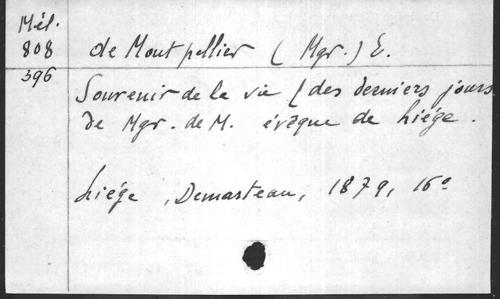 Mél.
808 de Montpellier (Mgr.) E.
396
Souvenir de la vie [des derniers jours
de Mgr. de M. évêque de Liége.
Liége, Demarteau, 1879, 16°